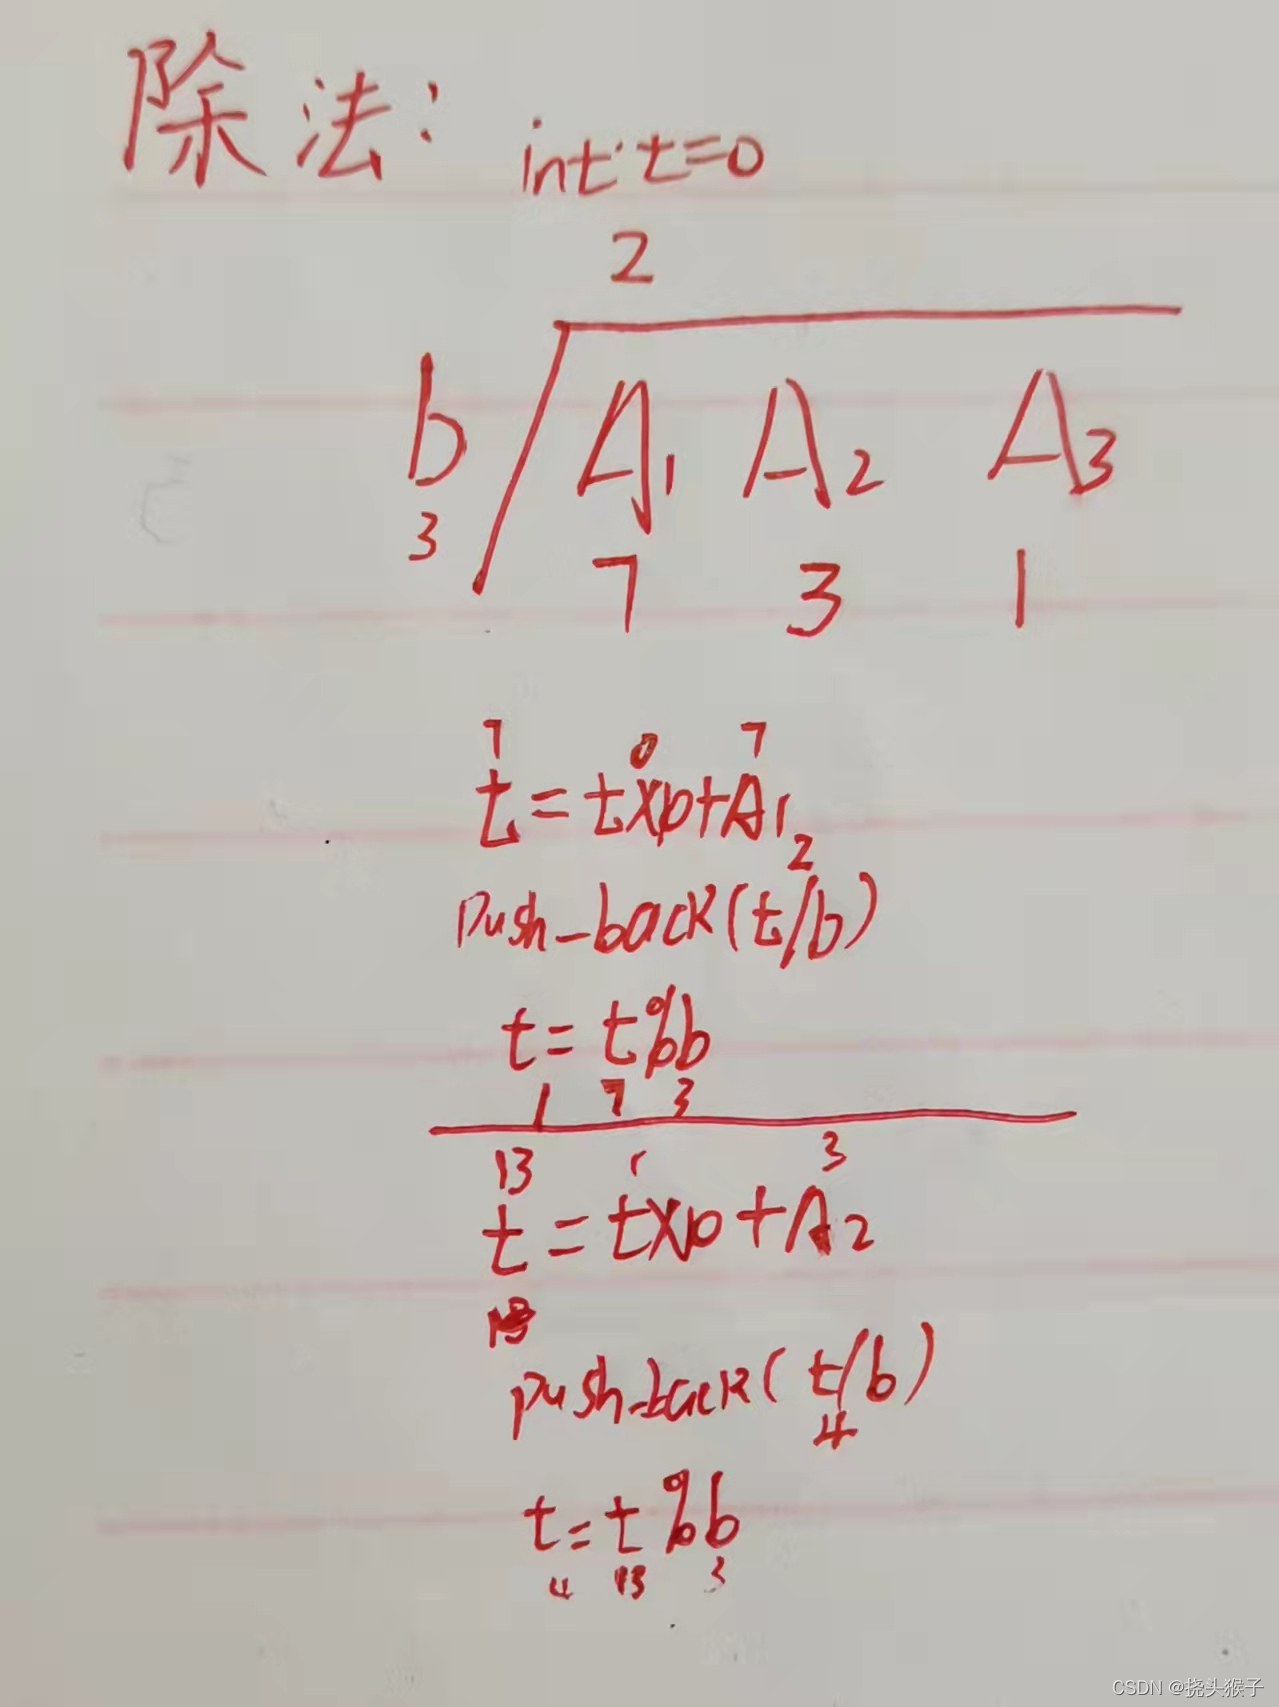 除法: int t=0
2
b A1 A2 A3
3 7 3 1
7 0 7
t=tx10+A1
2
push-back(t/b)
t=t%b
1 7 3
13 1 3
t=tx10+A2
13
push-back(t/b)
4
t=t%b
4 13 3
CSDN @挠头猴子